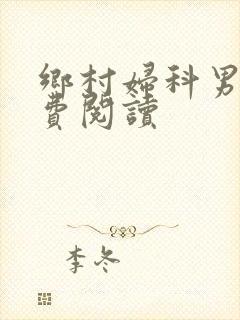 鄉村婦科男
費閱讀
李冬